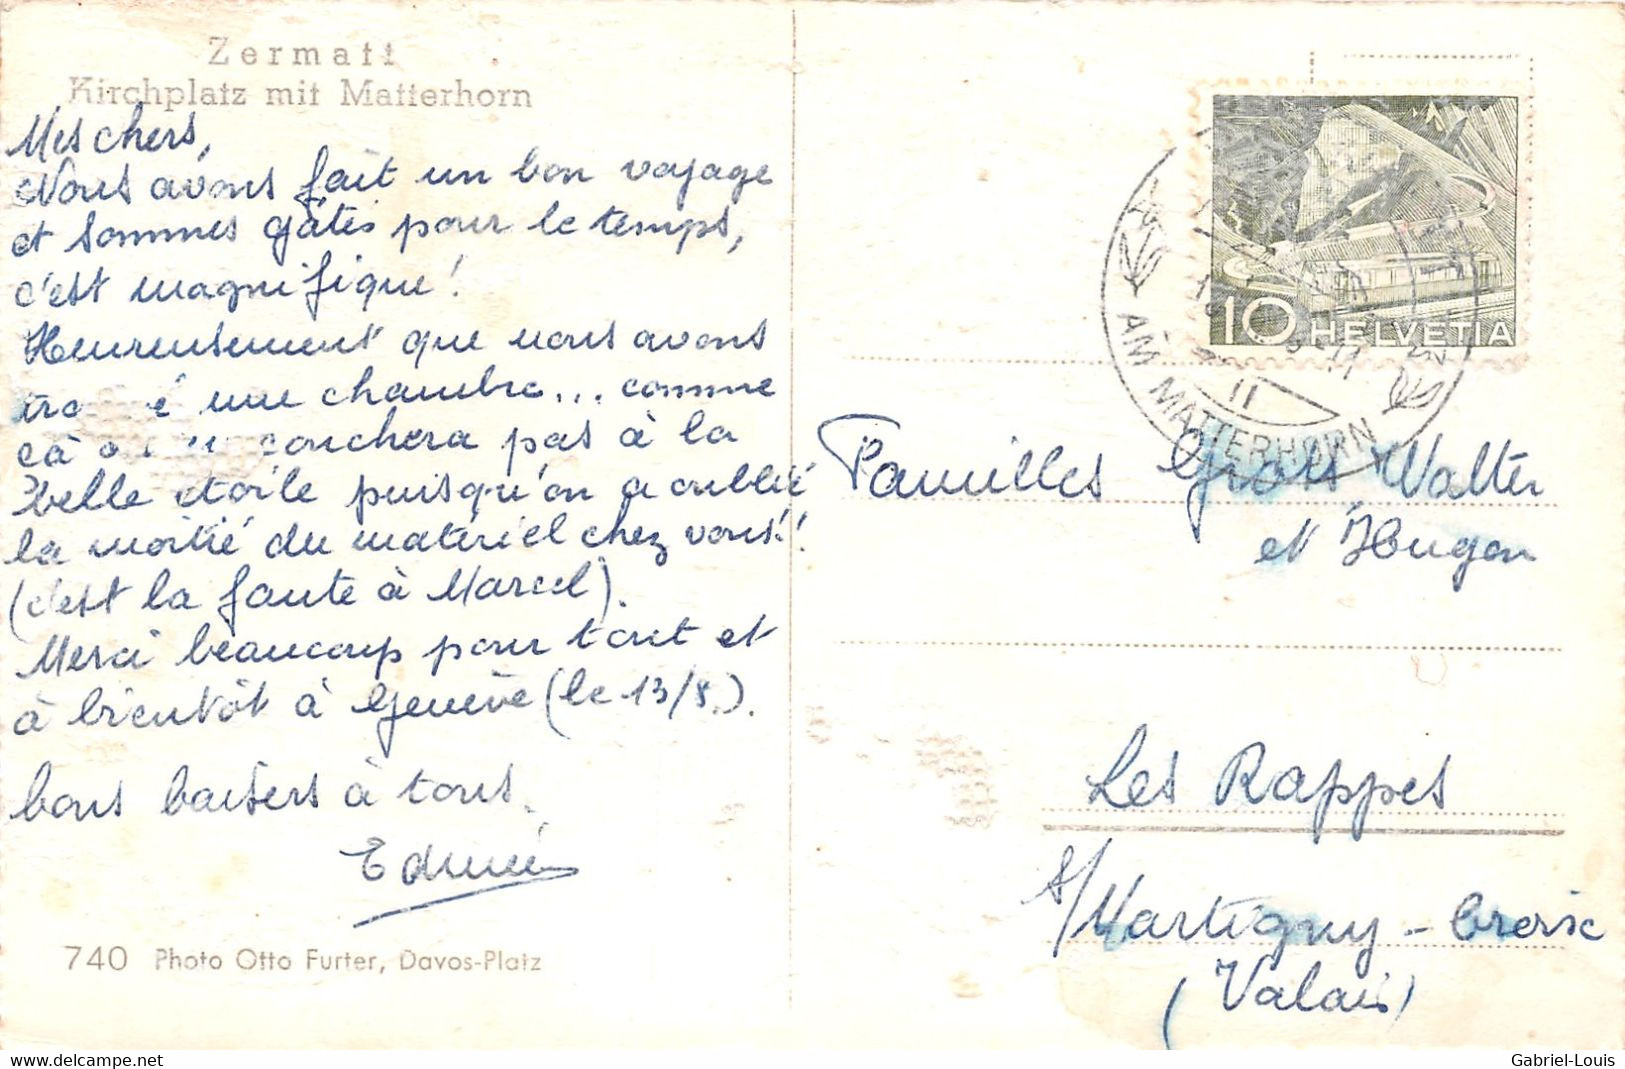 Zermatt
Kirchplatz mit Matterhorn
Mes chers,
Nous avons fait un bon voyage
et sommes gâtés pour le temps,
c'est magnifique!
Heureusement que nous avons
une chambre... comme
çà couchera pas à la
belle étoile puisqu'on a oublié
la moitié du matériel chez vous!!
(c'est la faute à Marcel).
Merci beaucoup pour tout et
à bientôt à Genève (le 13/8.).
bons baisers à tous.
Edmée
740 Photo Otto Furter, Davos-Platz
10 HELVETIA
AM MATTERHORN
11
Familles Walter
et Hugon
Les Rappes
s/Martigny-Croix
(Valais)
Gabriel-Louis